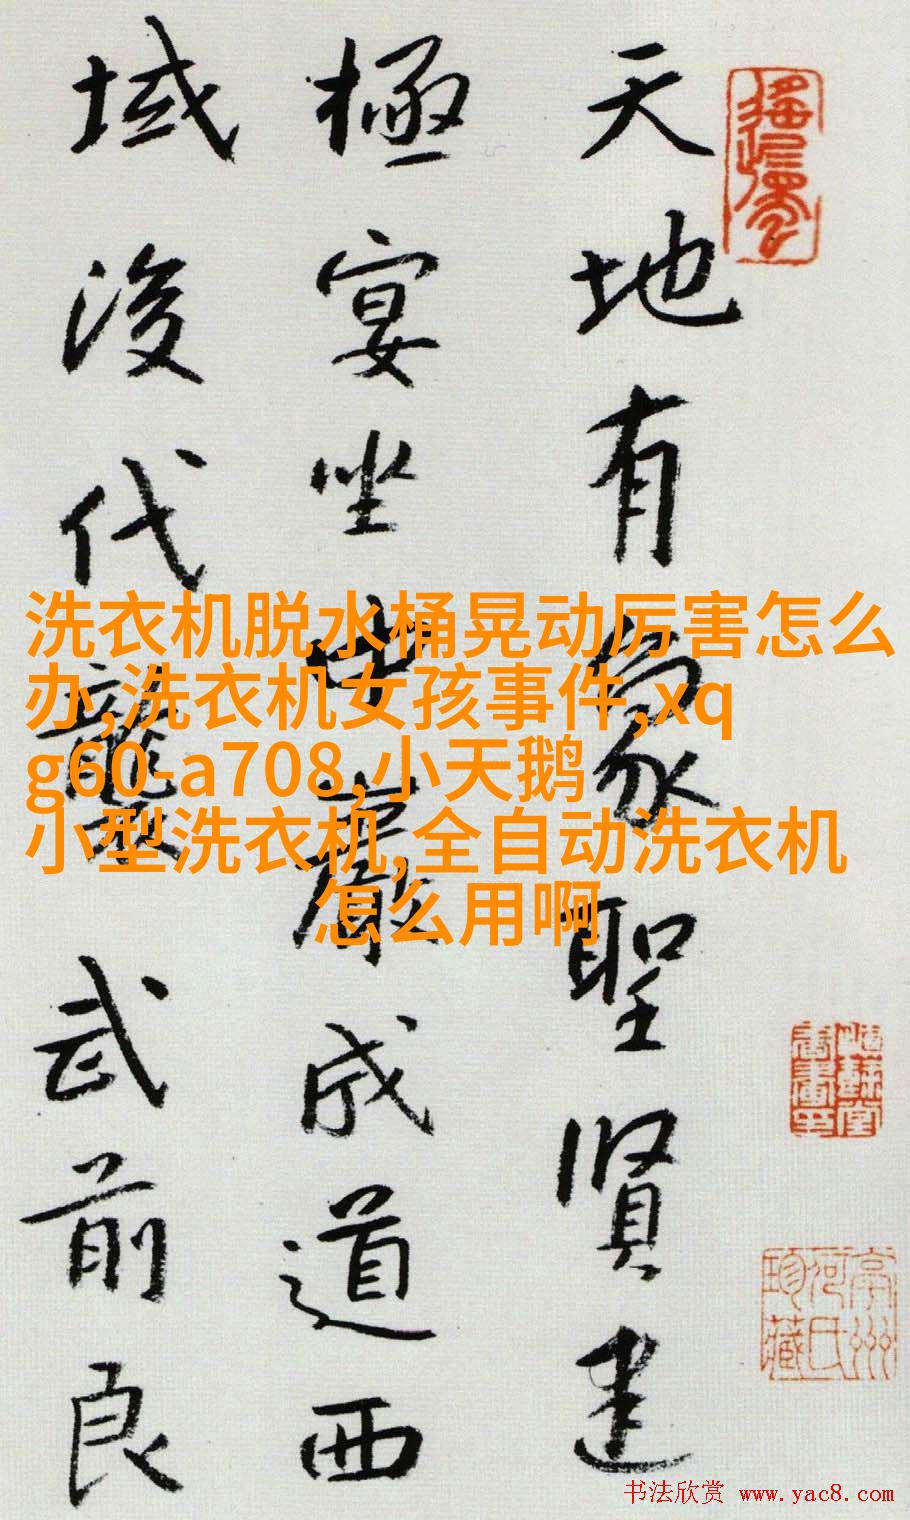 天地有象聖賢建
極宴坐中嚴成道西
域後代龍盛武前良
洗衣机脱水桶晃动厉害怎么
办,洗衣机女孩事件,xq
g60-a708,小天鹅
小型洗衣机,全自动洗衣机
怎么用啊
亭州
何氏
珍藏
书法欣赏 www.yac8.com